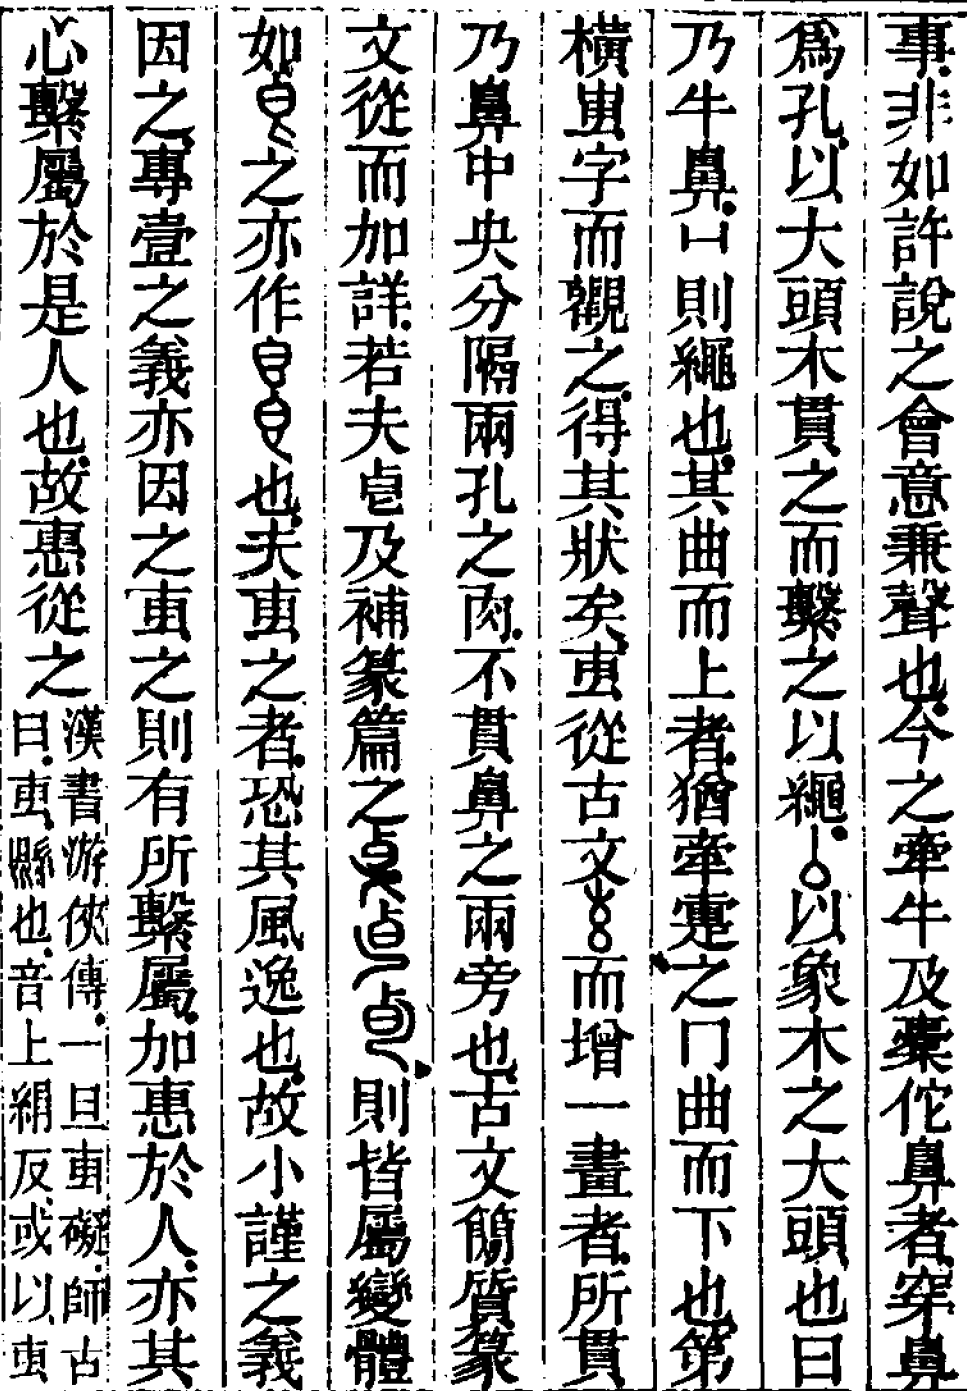 事非如許說之會意兼聲也今之牽牛及橐佗鼻者穿鼻
爲孔以大頭木貫之而繫之以繩以象木之大頭也曰
乃牛鼻冂則繩也其曲而上者猶牽疐之冂曲而下也第
橫叀字而觀之得其狀矣叀從古文而增一畫者所貫
乃鼻中央分隔兩孔之肉不貫鼻之兩旁也古文簡質篆
文從而加詳若夫皀及補篆篇之則皆屬變體
如之亦作也夫叀之者恐其風逸也故小謹之義
因之專壹之義亦因之叀之則有所繫屬加惠於人亦其
心繫屬於是人也故惠從之
漢書游俠傳一旦叀礙師古
曰叀縣也音上絹反或以叀